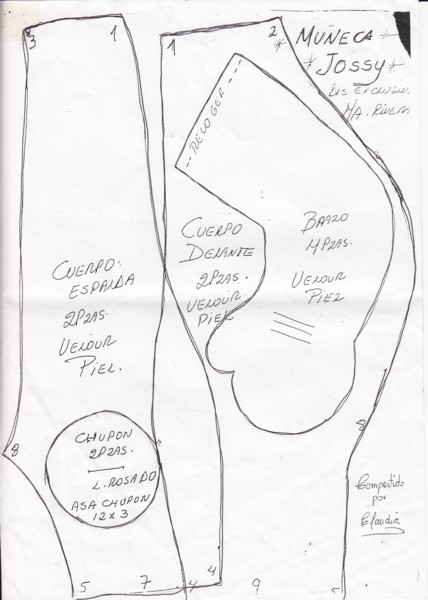 3
1
1
2
* MUÑECA
* JOSSY *
MA. RIVERA
CUERPO:
ESPALDA
2PZAS.
VELOUR
PIEL.
CUERPO
DELANTE
2PZAS.
VELOUR
PIEL
BRAZO
4PZAS.
VELOUR
PIEL
8
8
CHUPON
2PZAS.
L. ROSADO
ASA CHUPON
12 x 3
Compartido
por
Claudia
5
7
4
4
9